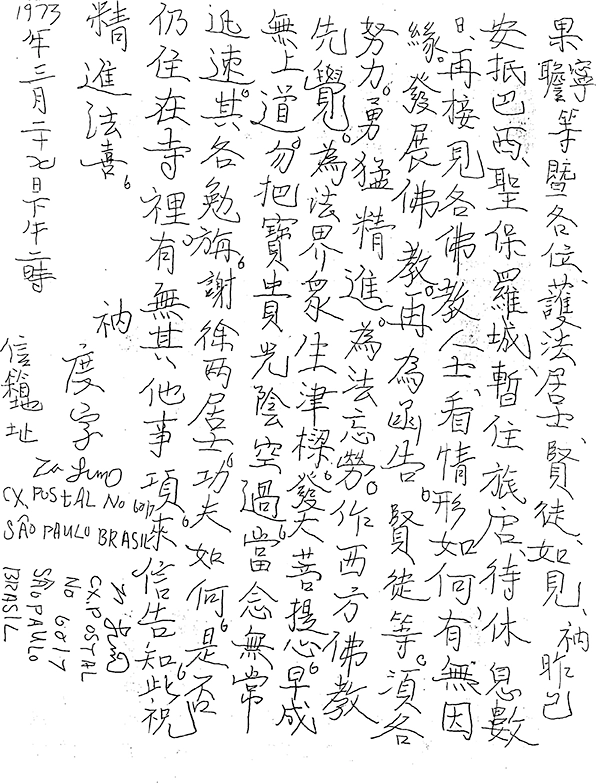 果寧瞻等暨各位護法居士、賢徒、如見、衲昨已
安抵巴西、聖保羅城、暫住旅店、待休息數
日、再接見各佛教人士、看情形如何、有無因
緣。發展佛教。再為函告。賢徒等。須各
努力。勇猛精進。為法忘勞。作西方佛教
先覺。為法界眾生津樑。發大菩提心。早成
無上道。勿把寶貴光陰空過。當念無常
迅速。其各勉旃。謝徐兩居士。功夫如何。是否
仍住在寺裡。有無其他事項。來信告知。此祝
精進法喜。
衲
度字
1973年三月二十七日下午二時
信箱地址
CX POSTAL No 6017
SÃO PAULO BRASIL
CX.POSTAL
No 6017
SÃO PAULO
BRASIL